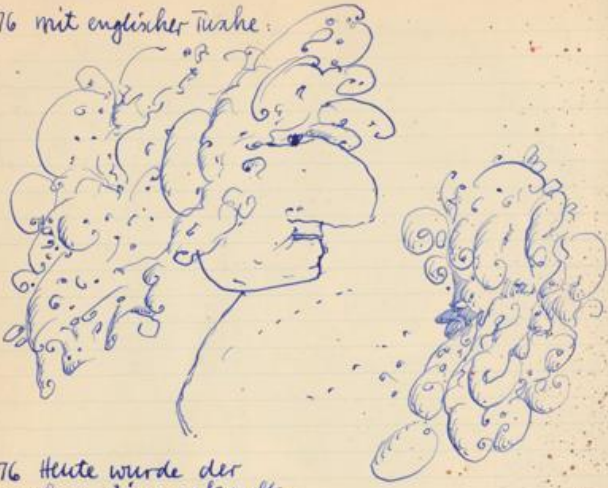 76 mit englischer Tusche:
76 Heute wurde der